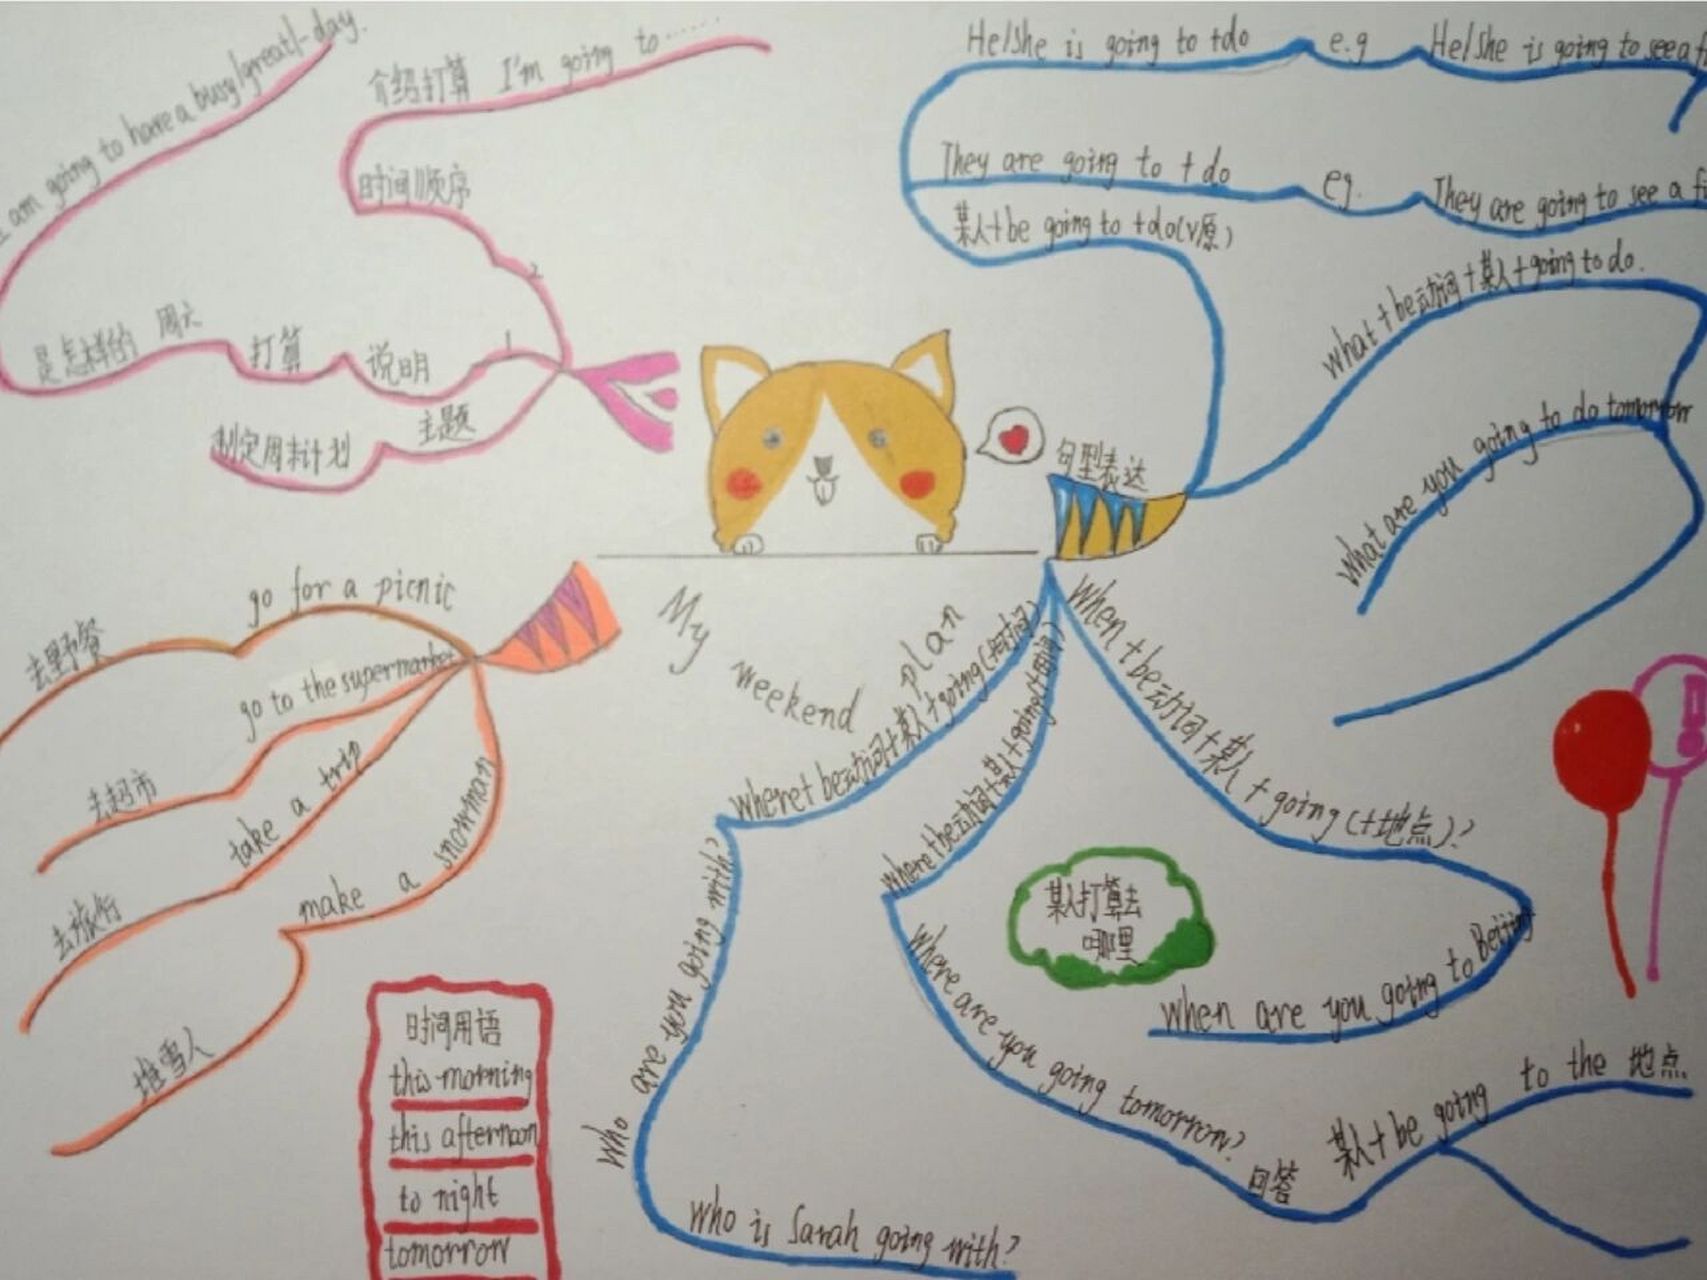 am going to have a busy/great/-day.
介绍打算 I'm going to ......
时间顺序
2
1
是怎样的 周六
打算
说明
主题
制定周末计划
He/she is going to +do
e.g
He/she is going to see a
They are going to + do
eg.
They are going to see a
某人+be going to +do(v原)
what + be动词+某人+going to do.
what are you going to do tomorrow
句型表达
My weekend plan
go for a picnic
去野餐
go to the supermarket
去超市
take a trip
去旅行
make a snowman
堆雪人
时间用语
this morning
this afternoon
to night
tomorrow
Where+ be动词+某人+going(+时间)
who are you going with?
Who is Sarah going with?
where+be动词+某人+going(+时间)
Where are you going tomorrow?
回答
某人+be going to the 地点
某人打算去
哪里
When + be动词+某人+going(+地点)?
When are you going to Beijing